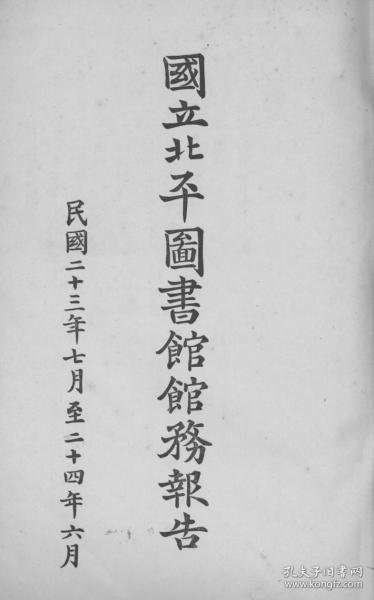 國立北平圖書館館務報告
民國二十三年七月至二十四年六月
孔夫子旧书网
www.kongfz.com